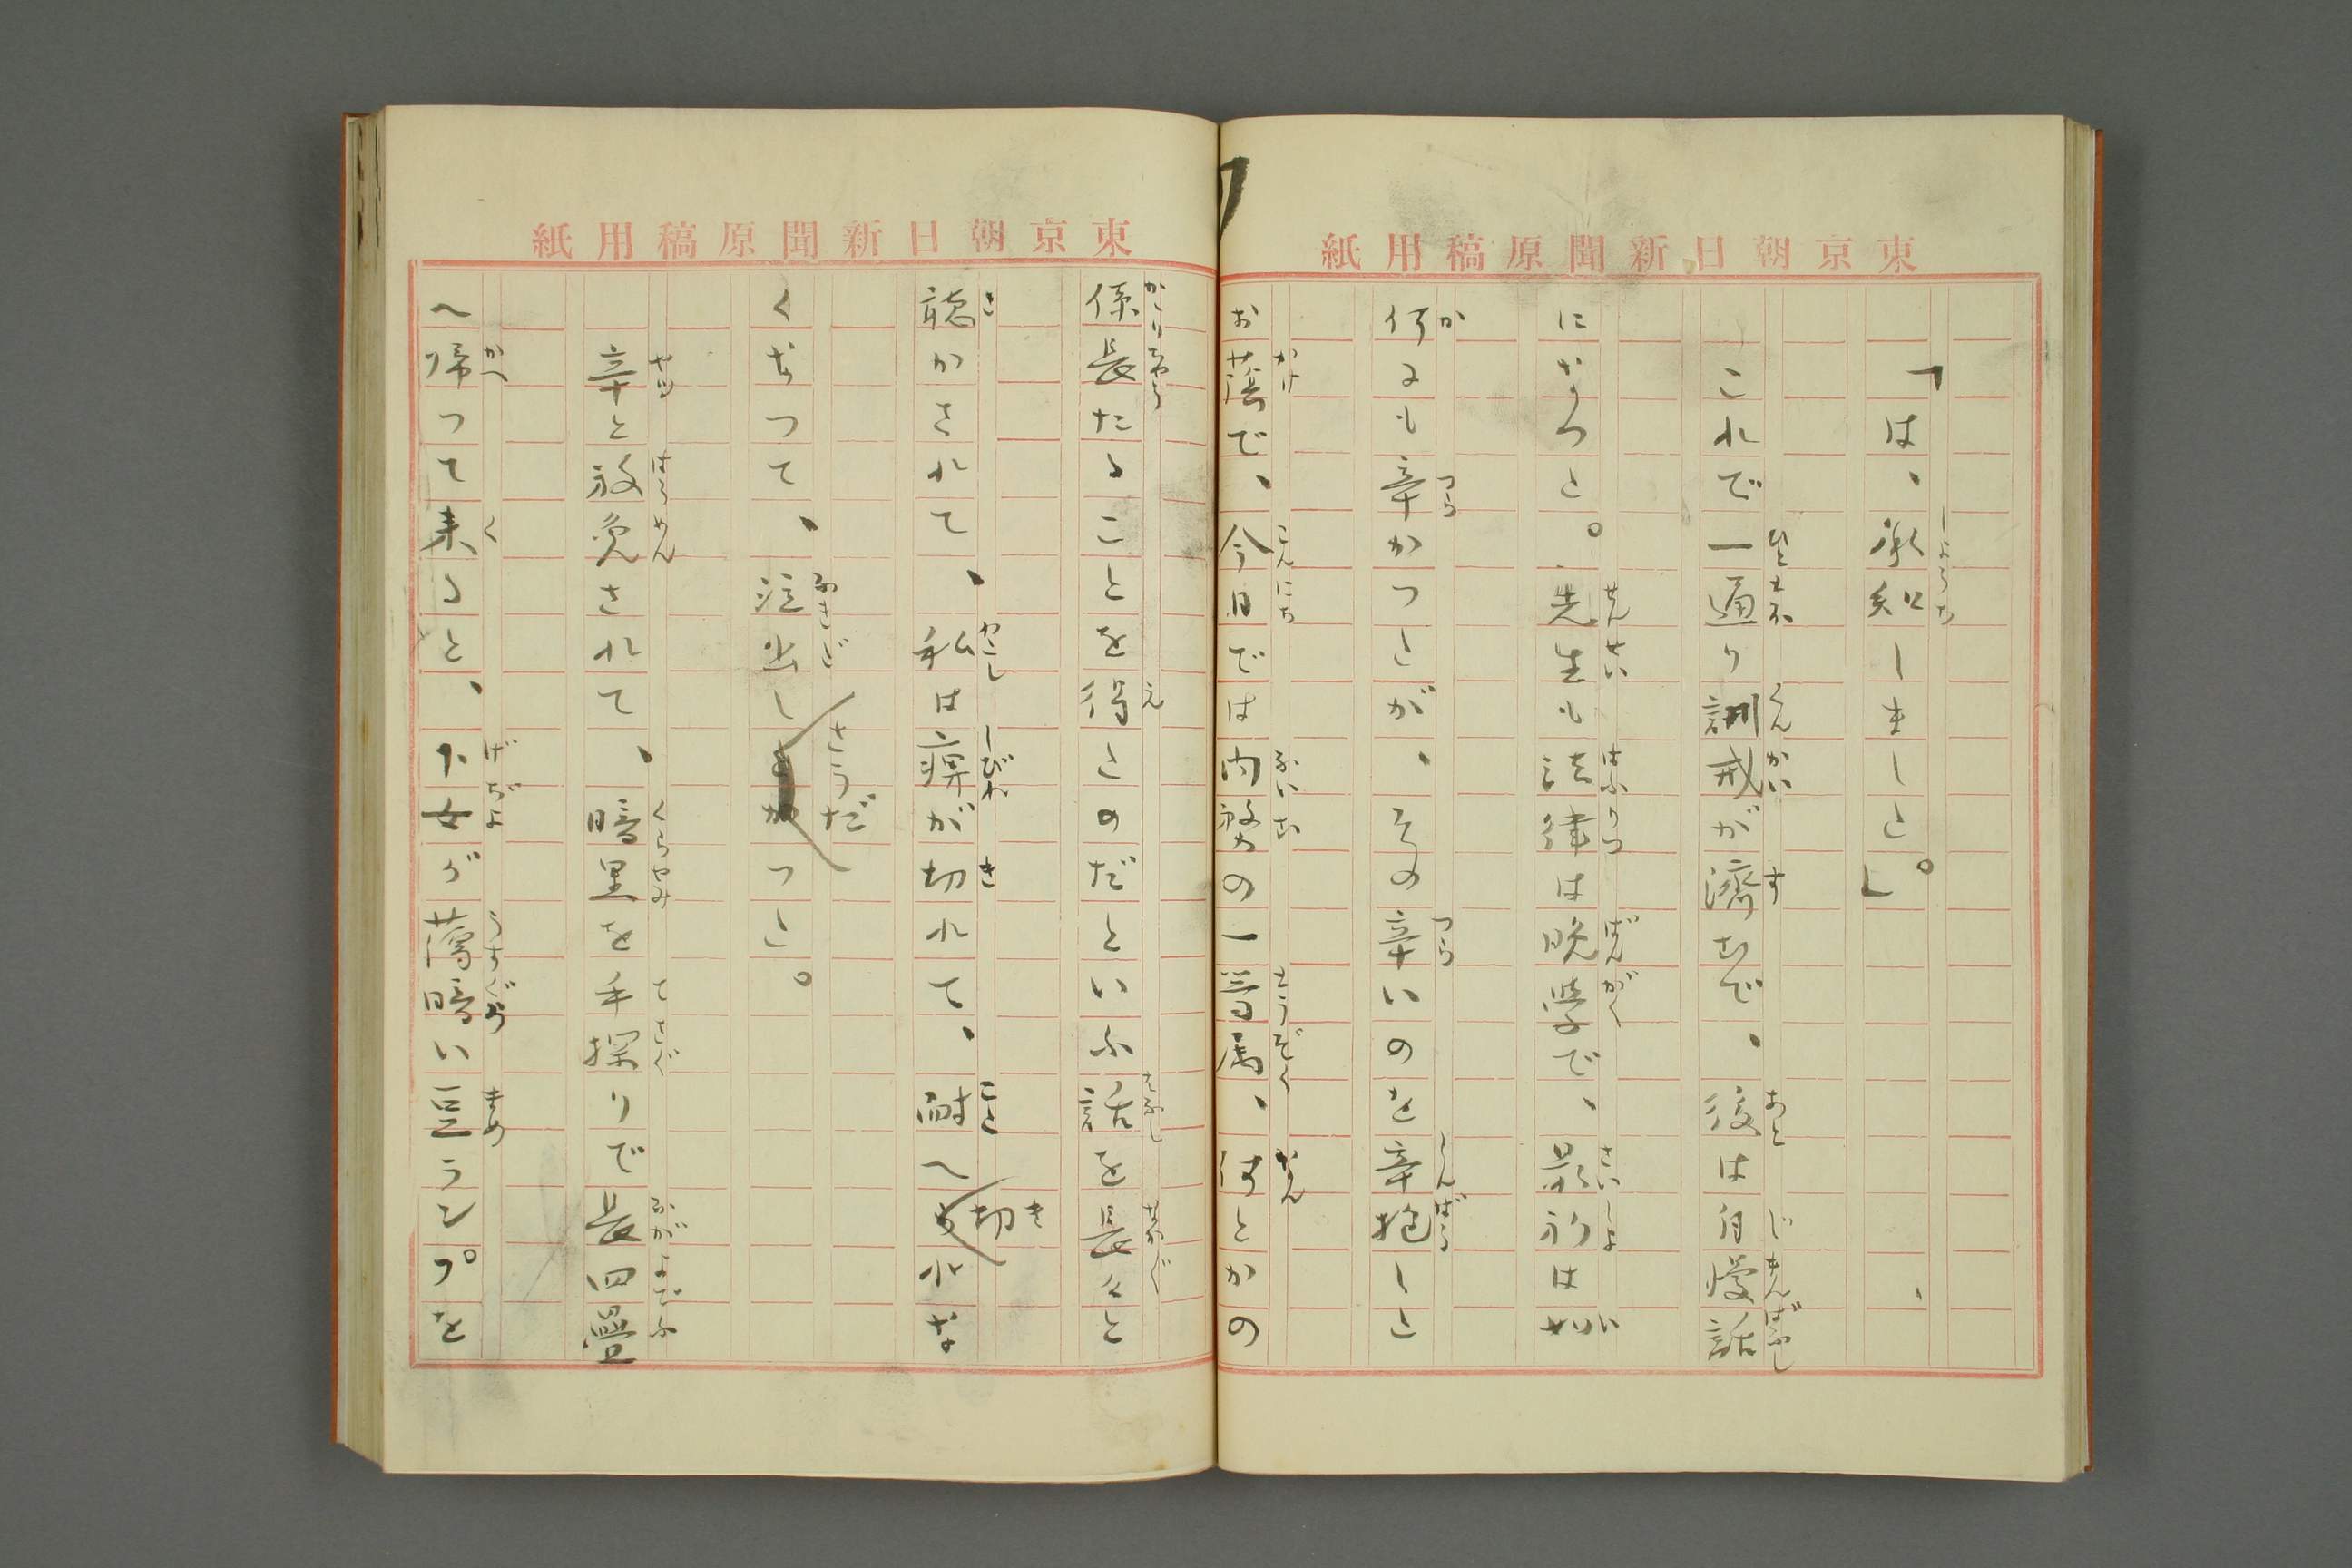 東京朝日新聞原稿用紙
「は、承知しました。」
これで一通り訓戒が濟むで、後は自慢話
になつた。先生も法律は晩学で、最初は如
何にも辛かつたが、その辛いのを辛抱した
お蔭で、今日では内務の一等属、何とかの
東京朝日新聞原稿用紙
係長たることを得たのだといふ話を長々と
聴かされて、私は痺が切れて、耐へ切れな
くなつて、泣出しさうだつた。
辛と放免されて、暗黒を手探りで長四疊
へ帰つて来ると、下女が薄暗い豆ランプを